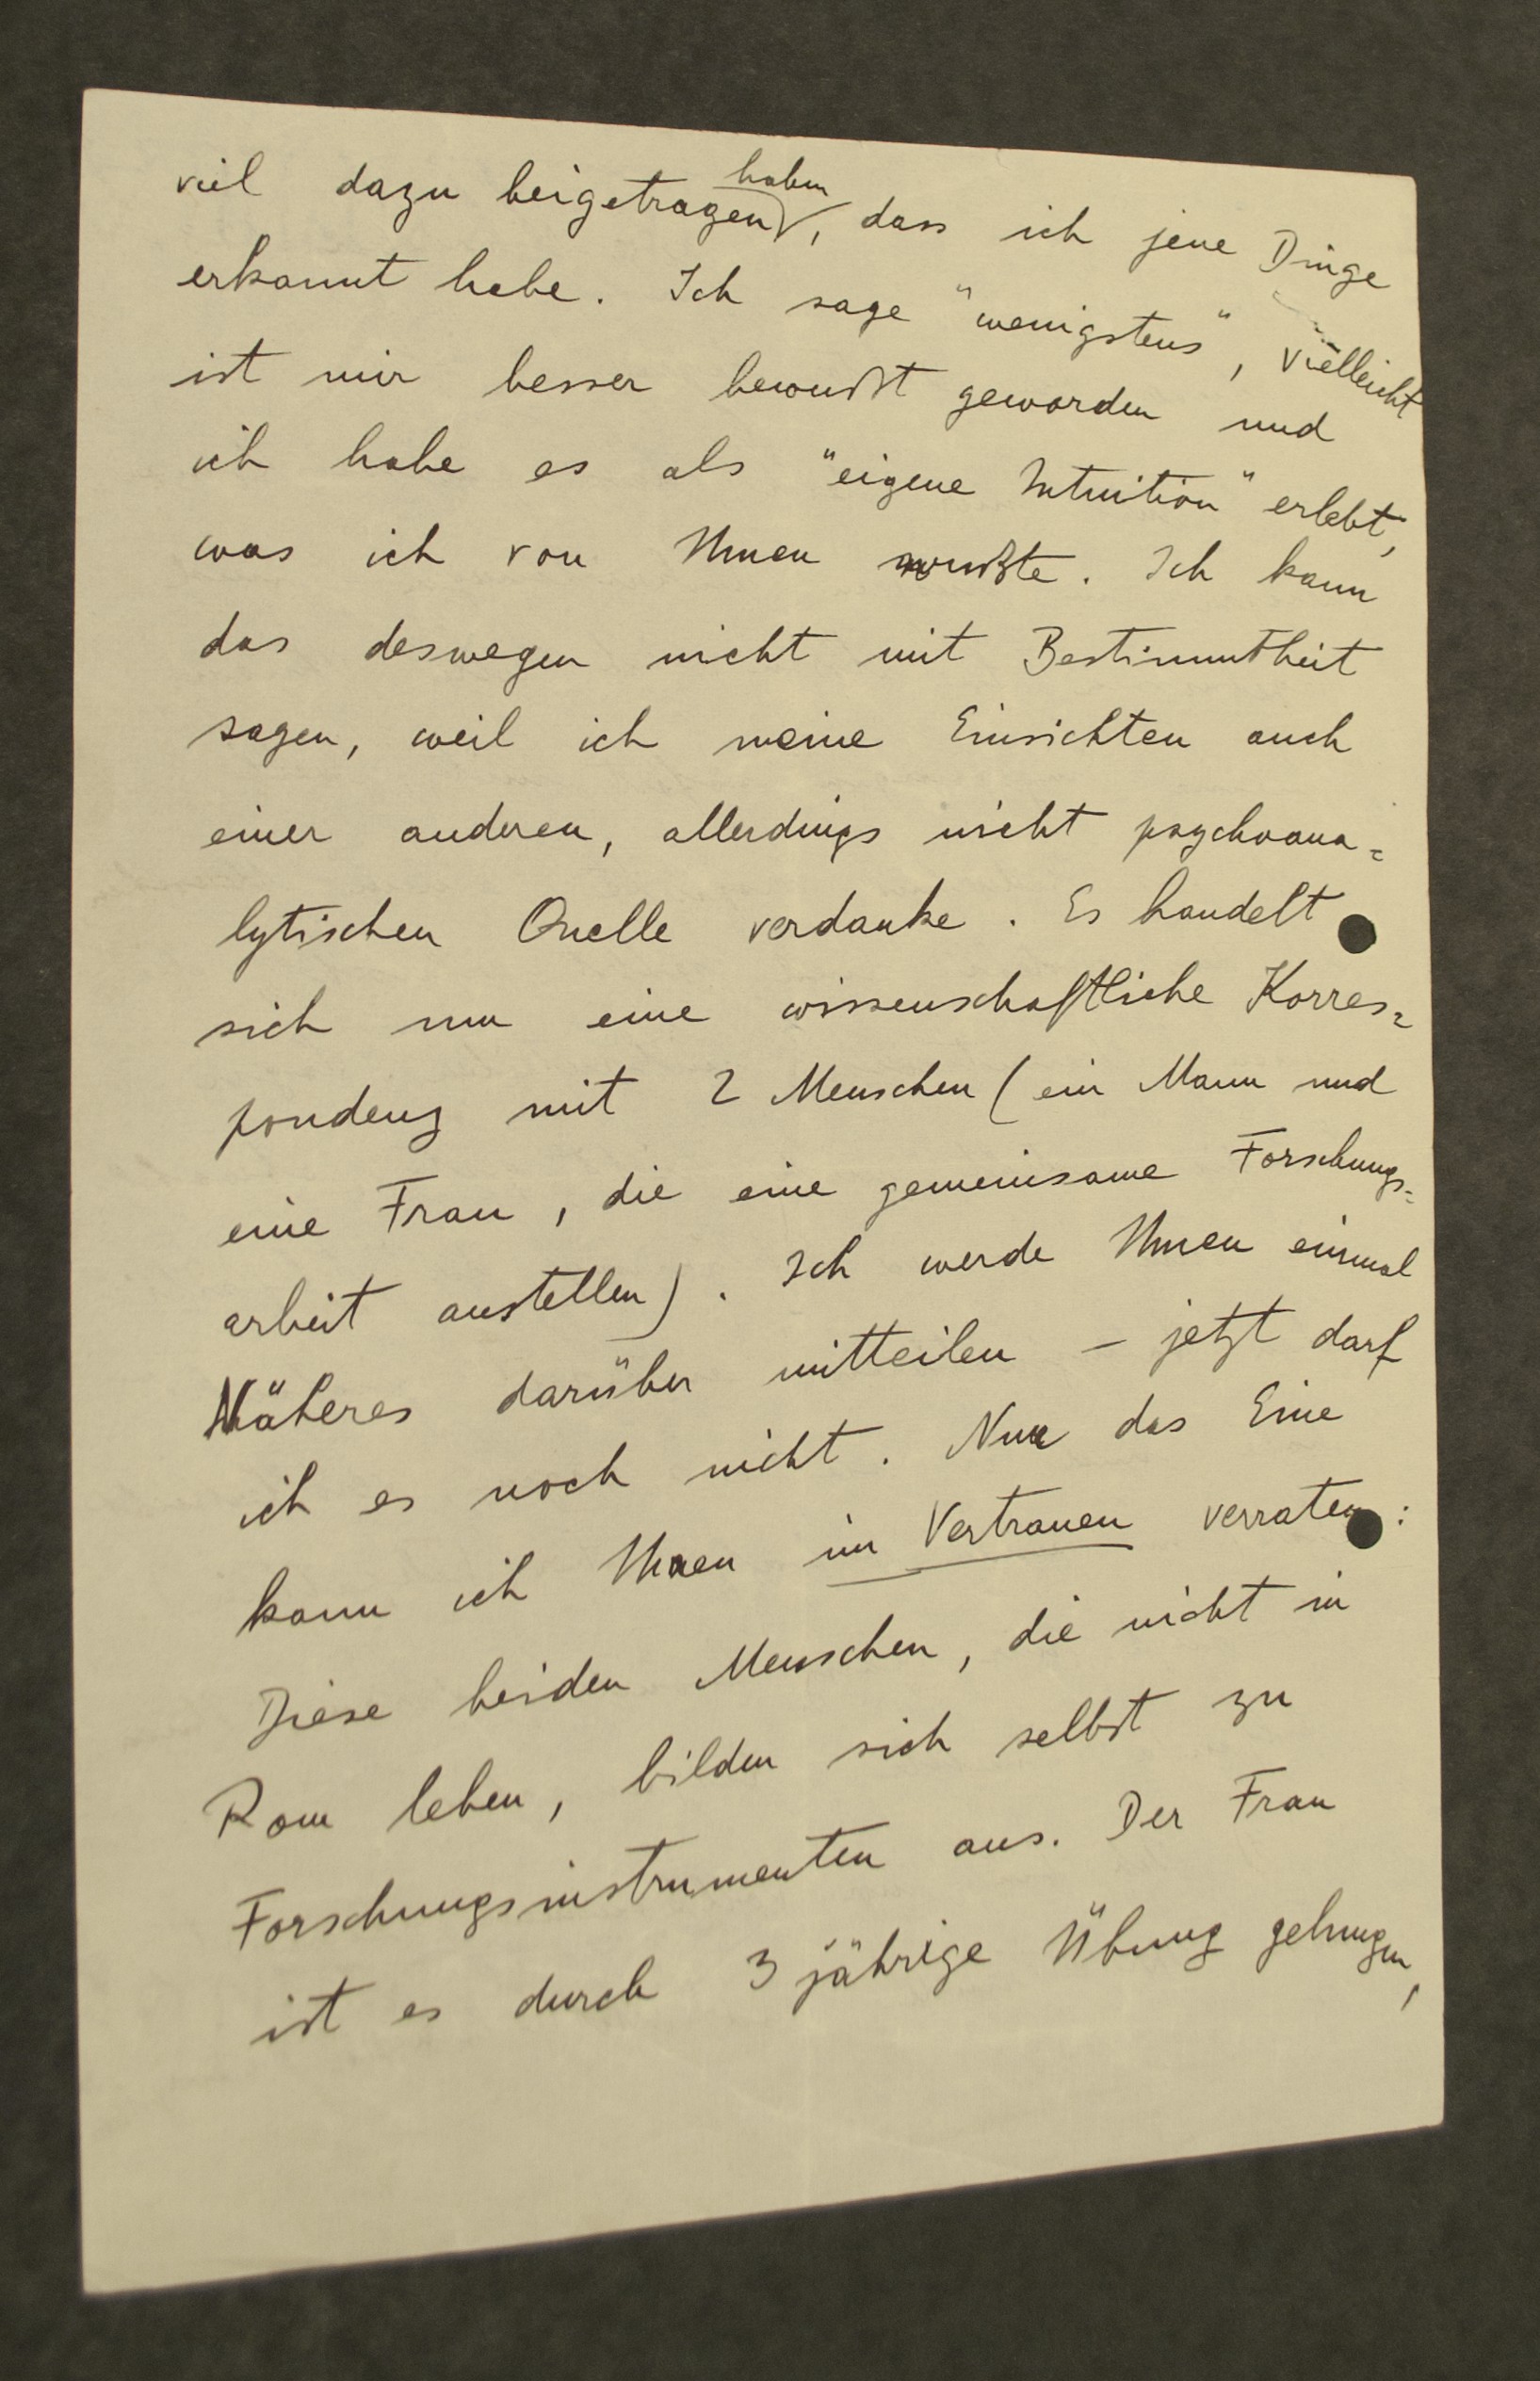 viel dazu beigetragen haben, dass ich jene Dinge
erkannt habe. Ich sage "wenigstens", vielleicht
ist mir besser bewußt geworden und
ich habe es als "eigene Intuition" erlebt,
was ich von Ihnen wußte. Ich kann
das deswegen nicht mit Bestimmtheit
sagen, weil ich meine Einsichten auch
einer anderen, allerdings nicht psychoana=
lytischen Quelle verdanke. Es handelt
sich um eine wissenschaftliche Korres=
pondenz mit 2 Menschen (ein Mann und
eine Frau, die eine gemeinsame Forschungs=
arbeit anstellen). Ich werde Ihnen einmal
Näheres darüber mitteilen – jetzt darf
ich es noch nicht. Nur das Eine
kann ich Ihnen im Vertrauen verraten:
Diese beiden Menschen, die nicht in
Rom leben, bilden sich selbst zu
Forschungsinstrumenten aus. Der Frau
ist es durch 3 jährige Übung gelungen,